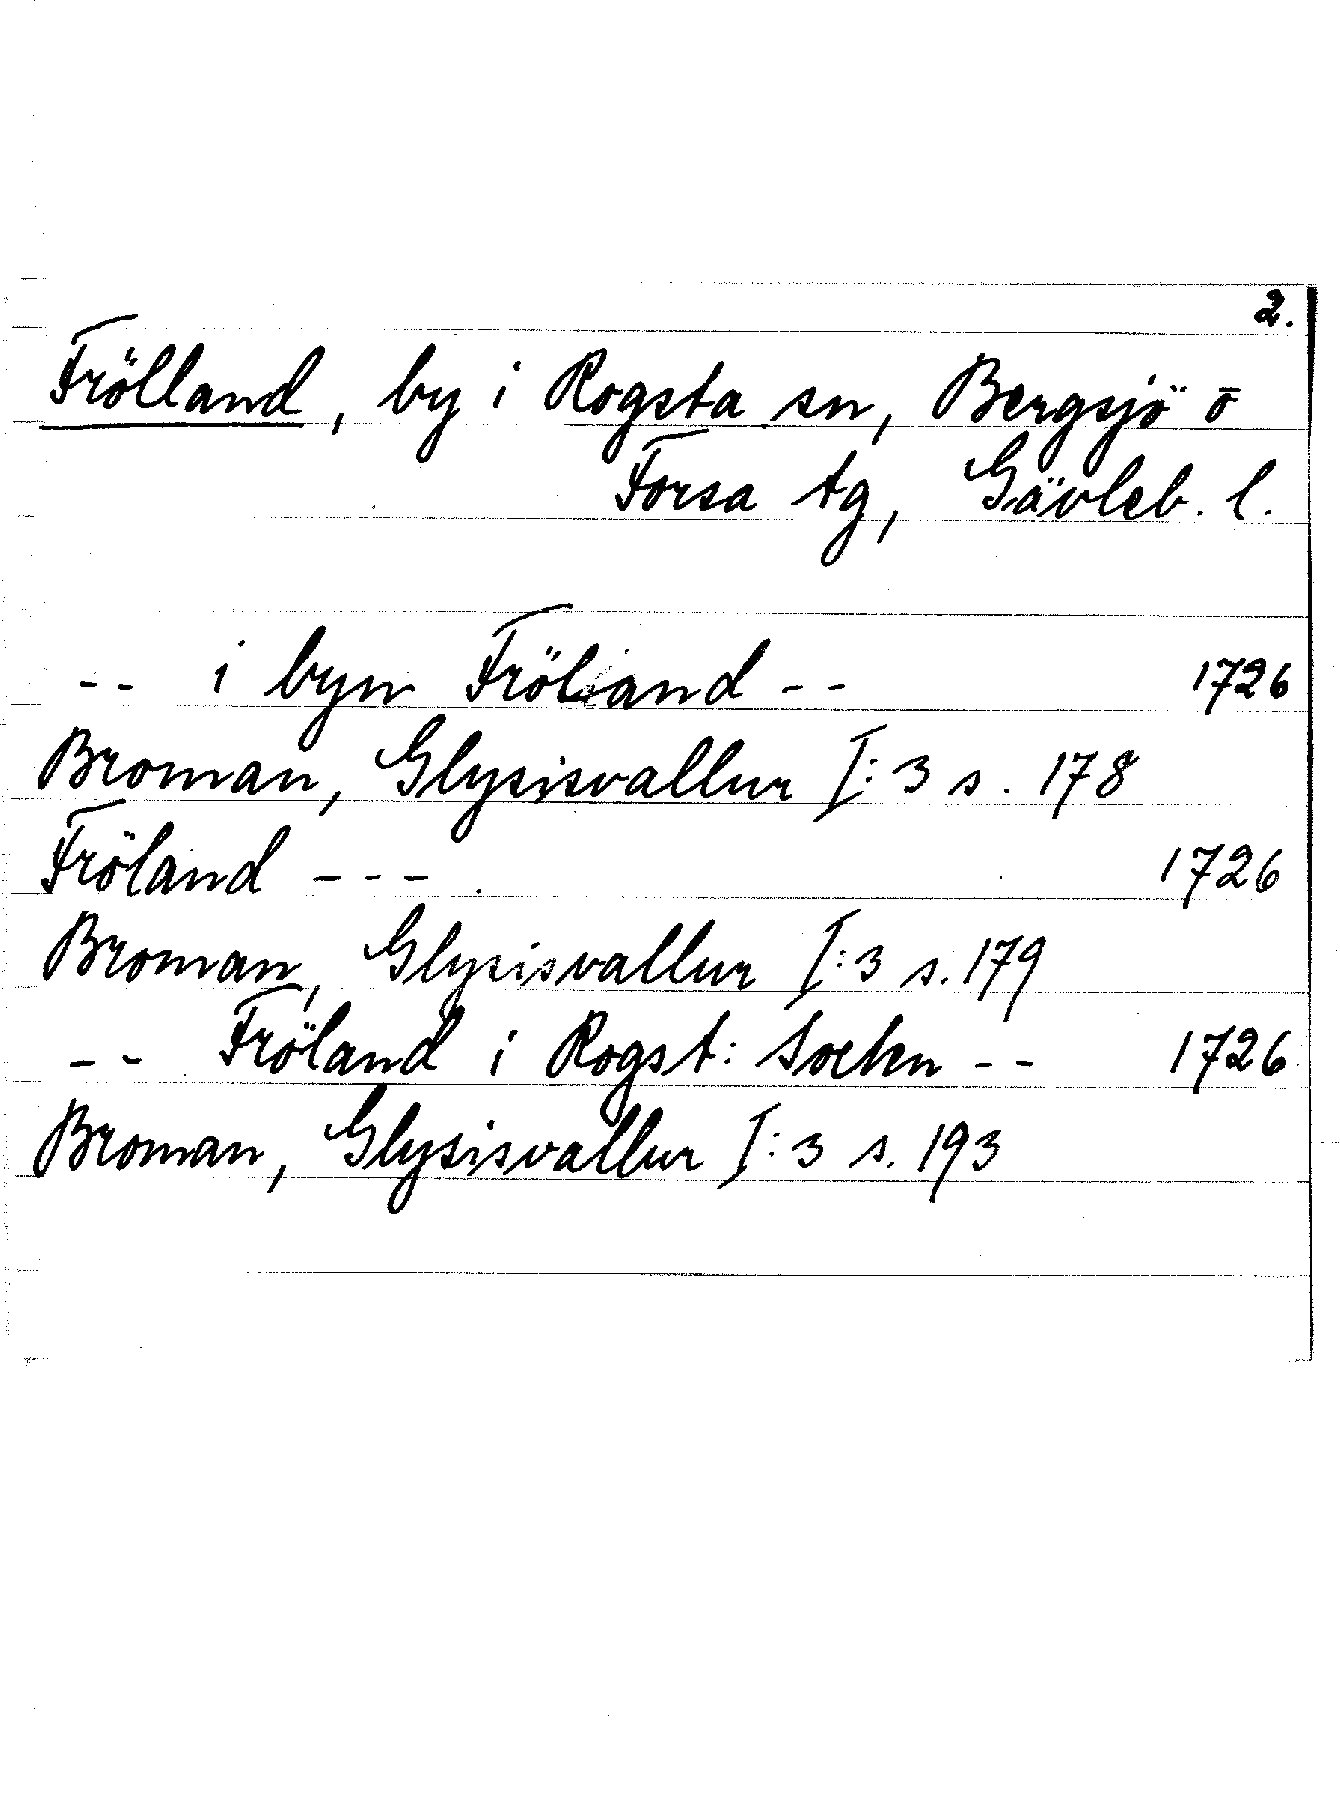 2.
Frölland, by i Rogsta sn, Bergsjö o
Forsa tg, Gävleb. l.
-- i byn Fröland -- 1726
Broman, Glysisvallur I:3 s. 178
Fröland --- 1726
Broman, Glysisvallur I:3 s. 179
-- Fröland i Rogst: Sockn -- 1726
Broman, Glysisvallur I:3 s. 193